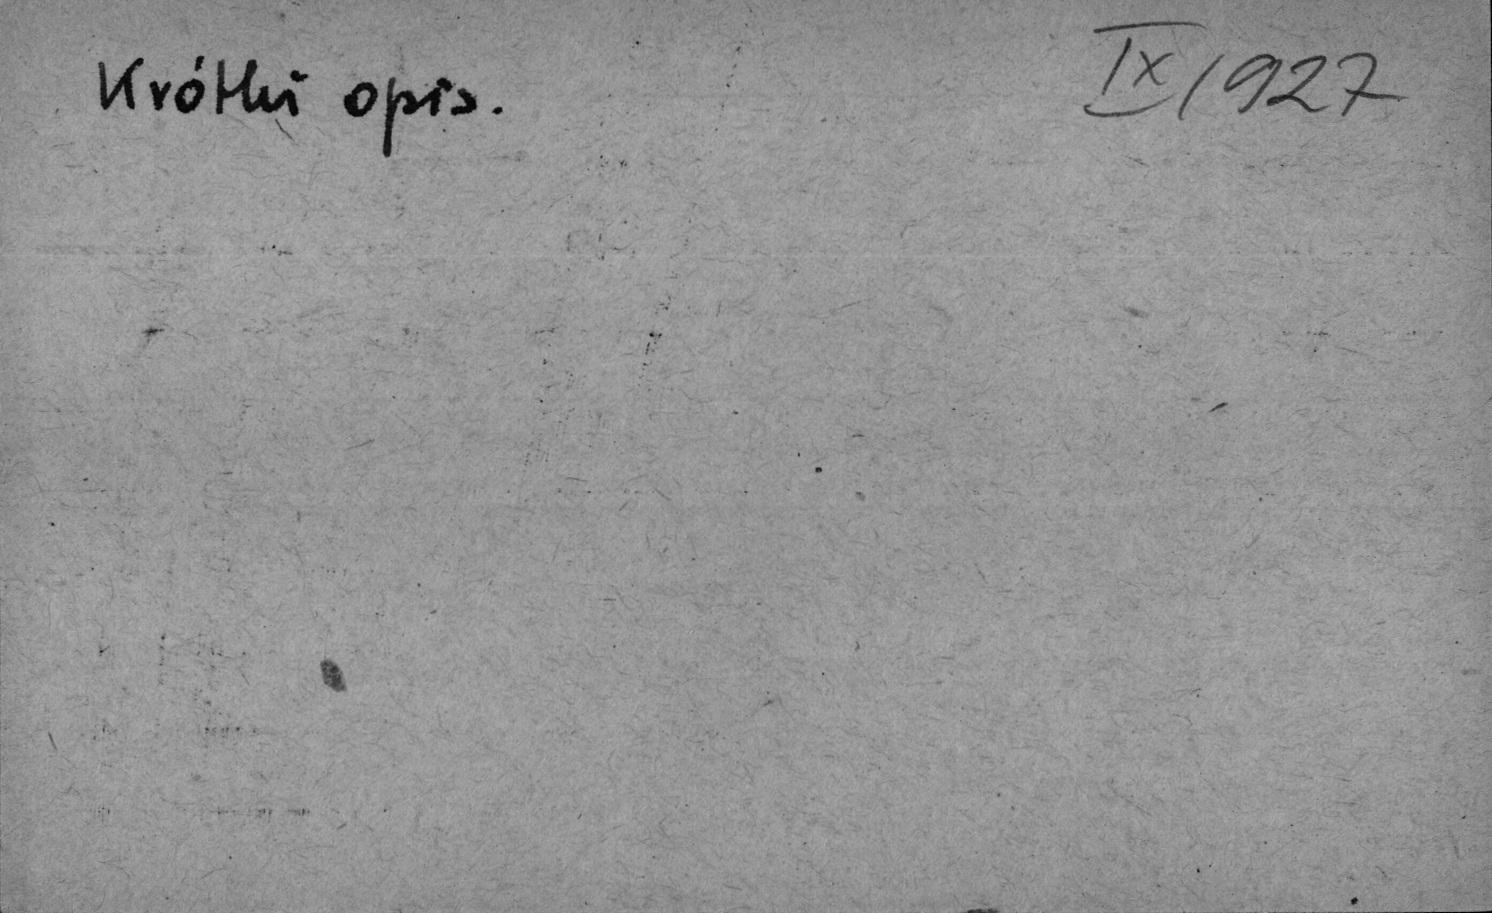 Krótki opis.
IX/1927